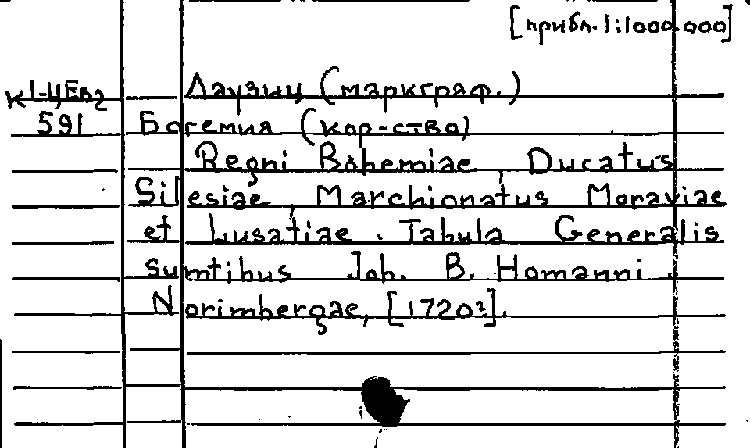 [прибл. 1:1000.000]
К 1-ЦЕв2 Лаузиц (маркграф.)
591 Богемия (кор-ство)
Regni Bohemiae, Ducatus
Silesiae, Marchionatus Moraviae
et Lusatiae. Tabula Generalis
sumtibus Joh. B. Homanni.
Norimbergae, [1720?].